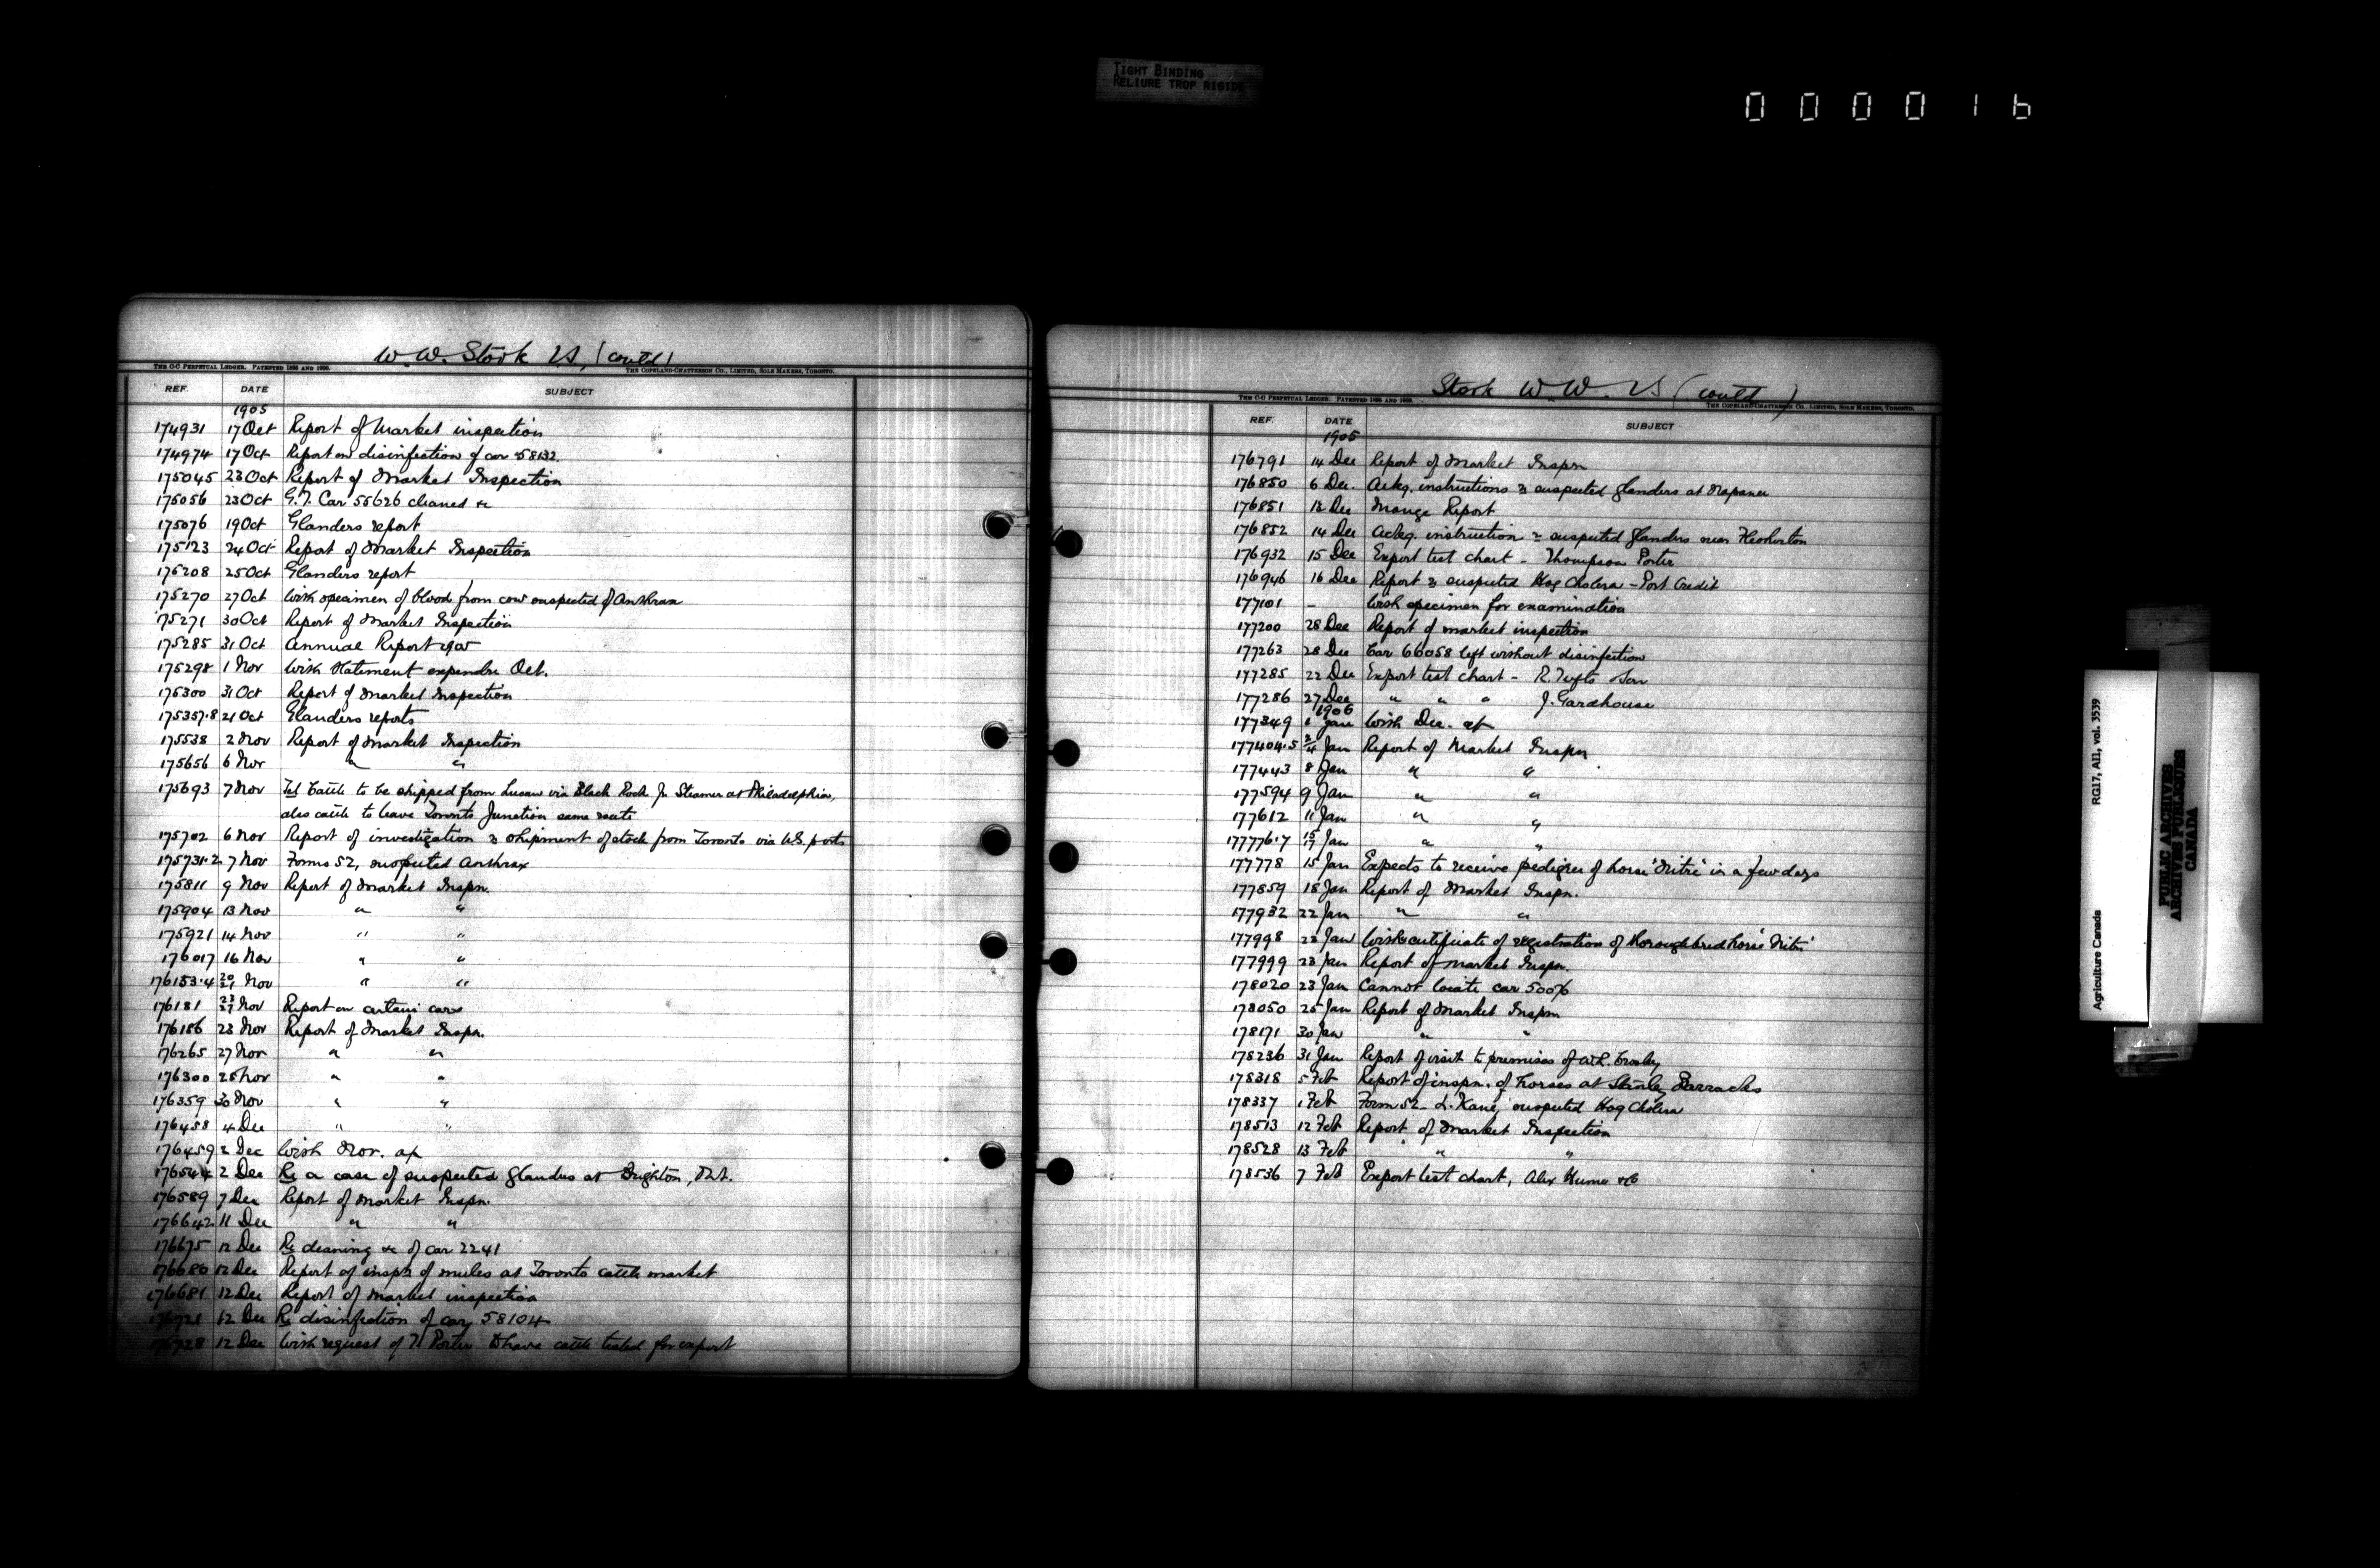 TIGHT BINDING
RELIURE TROP RIGIDE
000016
W. W. Stork V.S. (contd)
THE C-C PERPETUAL LEDGER. PATENTED 1898 AND 1900. THE COPELAND-CHATTERSON CO., LIMITED, SOLE MAKERS, TORONTO.
REF. DATE SUBJECT
1905
174931 17 Oct Report of Market inspection
174974 17 Oct Report on disinfection of car 58132.
175045 23 Oct Report of Market Inspection
175056 23 Oct G.T. Car 55626 cleaned &c
175076 19 Oct Glanders report
175123 24 Oct Report of Market Inspection
175208 25 Oct Glanders report
175270 27 Oct With specimen of blood from cow suspected of Anthrax
175271 30 Oct Report of Market Inspection
175285 31 Oct Annual Report 1905
175298 1 Nov With Statement expendre Oct.
175300 31 Oct Report of Market Inspection
175357.8 21 Oct Glanders reports
175538 2 Nov Report of Market Inspection
175656 6 Nov " "
175693 7 Nov Tel Cattle to be shipped from Lucan via Black Rock Jn Steamer at Philadelphia,
also cattle to leave Toronto Junction same route
175702 6 Nov Report of investigation re shipment of stock from Toronto via U.S. ports
175731.2 7 Nov Forms 52, suspected Anthrax
175811 9 Nov Report of Market Inspn.
175904 13 Nov " "
175921 14 Nov " "
176017 16 Nov " "
176153.4 20/21 Nov " "
176181 23/27 Nov Report on certain cars
176186 23 Nov Report of Market Inspn.
176265 27 Nov " "
176300 28 Nov " "
176359 30 Nov " "
176458 4 Dec " "
176459 2 Dec With Nov. a/c
176544 2 Dec Re a case of suspected glanders at Brighton, Ont.
176589 7 Dec Report of Market Inspn.
176642 11 Dec " "
176675 12 Dec Re cleaning &c of car 2241
176680 12 Dec Report of inspn of mules at Toronto cattle market
176681 12 Dec Report of Market inspection
176721 12 Dec Re disinfection of car 58104
176728 12 Dec With request of T. Porter to have cattle tested for export
Stork W. W. V.S. (contd)
THE C-C PERPETUAL LEDGER. PATENTED 1898 AND 1900. THE COPELAND-CHATTERSON CO., LIMITED, SOLE MAKERS, TORONTO.
REF. DATE SUBJECT
1905
176791 14 Dec Report of Market Inspn
176850 6 Dec. Ackg. instructions re suspected glanders at Napanee
176851 13 Dec Mange Report
176852 14 Dec Ackg. instruction re suspected glanders near Flesherton
176932 15 Dec Export test chart - Thompson Porter
176946 16 Dec Report re suspected Hog Cholera - Port Credit
177101 - With specimen for examination
177200 28 Dec Report of market inspection
177263 28 Dec Car 66058 left without disinfection
177285 22 Dec Export test chart - R. Tufts & Son
177286 27 Dec " " " J. Gardhouse
1906
177349 1 Jan With Dec. a/c
177404.5 2/4 Jan Report of Market Inspn
177443 8 Jan " "
177594 9 Jan " "
177612 11 Jan " "
177776.7 15/17 Jan " "
177778 15 Jan Expects to receive pedigree of horse "Nitre" in a few days
177859 18 Jan Report of Market Inspn.
177932 22 Jan " "
177998 23 Jan With certificate of registration of thoroughbred horse "Nitre"
177999 23 Jan Report of Market Inspn.
178020 23 Jan Cannot locate car 50076
178050 25 Jan Report of Market Inspn
178171 30 Jan " "
178236 31 Jan Report of visit to premises of W.R. Crosby
178318 5 Feb Report of inspn. of horses at Stanley Barracks
178337 1 Feb Form 52 - L. Kane, suspected Hog Cholera
178513 12 Feb Report of Market Inspection
178528 13 Feb " " "
178536 7 Feb Export test chart, Alex Hume & Co
Agriculture Canada RG17, AII, vol. 3539
PUBLIC ARCHIVES
ARCHIVES PUBLIQUES
CANADA